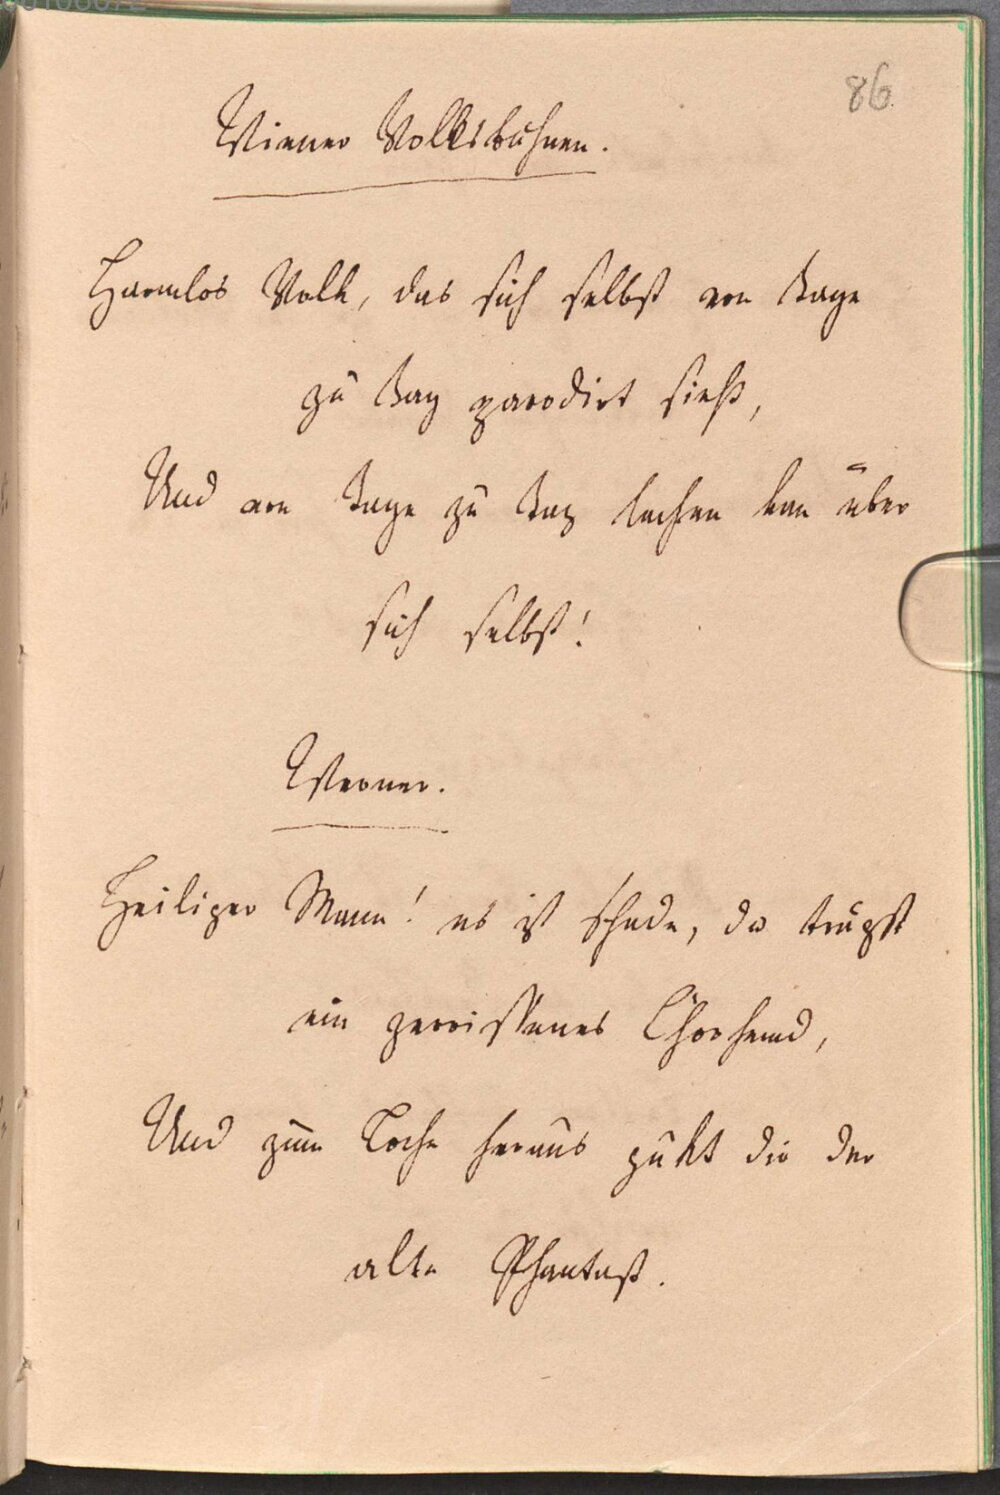 86.
Wiener Volksbühnen.
Harmlos Volk, das sich selbst von Tage
zu Tag parodirt sieht,
Und von Tage zu Tag lachen kan über
sich selbst!
Werner.
Heiliger Mann! es ist Schade, du trugst
ein zerrissenes Chorhemd,
Und zum Loche heraus gukt dir der
alte Phantast.